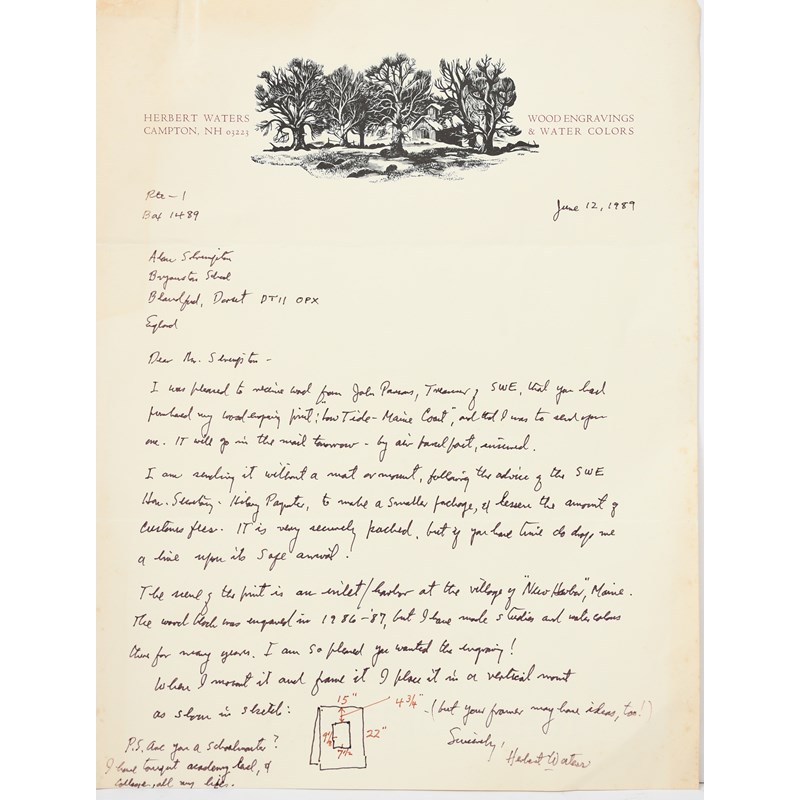 HERBERT WATERS
CAMPTON, NH 03223
WOOD ENGRAVINGS
& WATER COLORS
Rte - 1
Box 1489
June 12, 1989
Alan
Bryanston School
Blandford, Dorset DT11 OPX
England
Dear Mr.
I was pleased to receive word from John Parsons, Treasurer of SWE, that you had
purchased my wood engraving print, "Low Tide - Maine Coast", and that I was to send you
one. IT will go in the mail tomorrow - by air parcel post, insured.
I am sending it without a mat or mount, following the advice of the SWE
Hon. Secretary - Hilary Paynter, to make a smaller package, & lessen the amount of
customs fees. IT is very securely packed, but if you have time do drop me
a line upon its safe arrival!
The scene of the print is an inlet/harbor at the village of "New Harbor", Maine.
The wood block was engraved in 1986-'87, but I have made studies and watercolors
there for many years. I am so pleased you wanted the engraving!
When I mount it and frame it I place it in a vertical mount
as shown in sketch:
15"
4 3/4"
22"
9 1/4
7 1/2
- (but your framer may have ideas, too!)
Sincerely,
Herbert Waters
P.S. Are you a schoolmaster?
I have taught academy level, &
college, all my life.